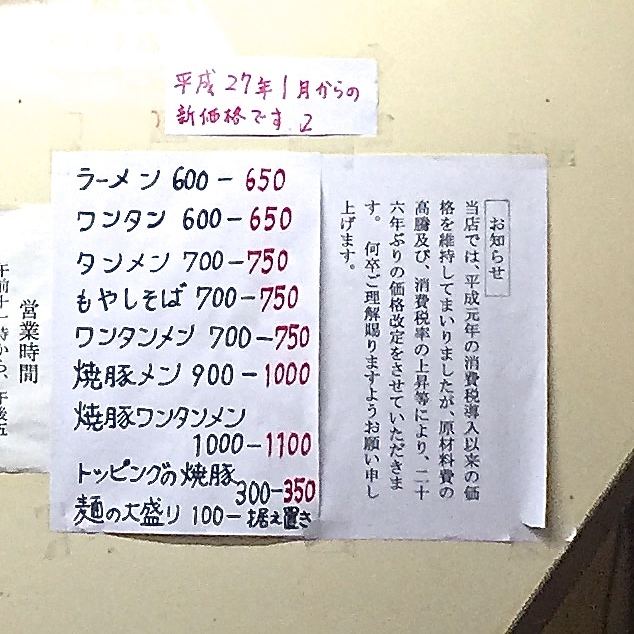 平成27年1月からの
新価格です。
ラーメン 600-650
ワンタン 600-650
タンメン 700-750
もやしそば 700-750
ワンタンメン 700-750
焼豚メン 900-1000
焼豚ワンタンメン
1000-1100
トッピングの焼豚
300-350
麺の大盛り 100-据え置き
お知らせ
当店では、平成元年の消費税導入以来の価
格を維持してまいりましたが、原材料費の
高騰及び、消費税率の上昇等により、二十
六年ぶりの価格改定をさせていただきま
す。 何卒ご理解賜りますようお願い申し
上げます。
営業時間
午前十一時から、午後五